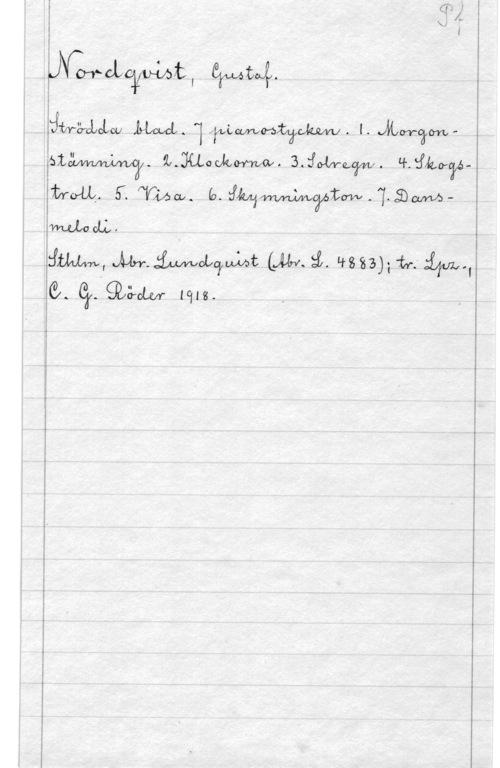 Pf
Nordqvist, Gustaf.
Strödda blad. 7 pianostycken. 1. Morgon-
stämning. 2. Klockorna. 3. Solregn. 4. Skogs-
troll. 5. Visa. 6. Skymningston. 7. Dans-
melodi.
Sthlm, Abr. Lundquist (Abr. L. 4883); tr. Lpz.,
C. G. Röder 1918.